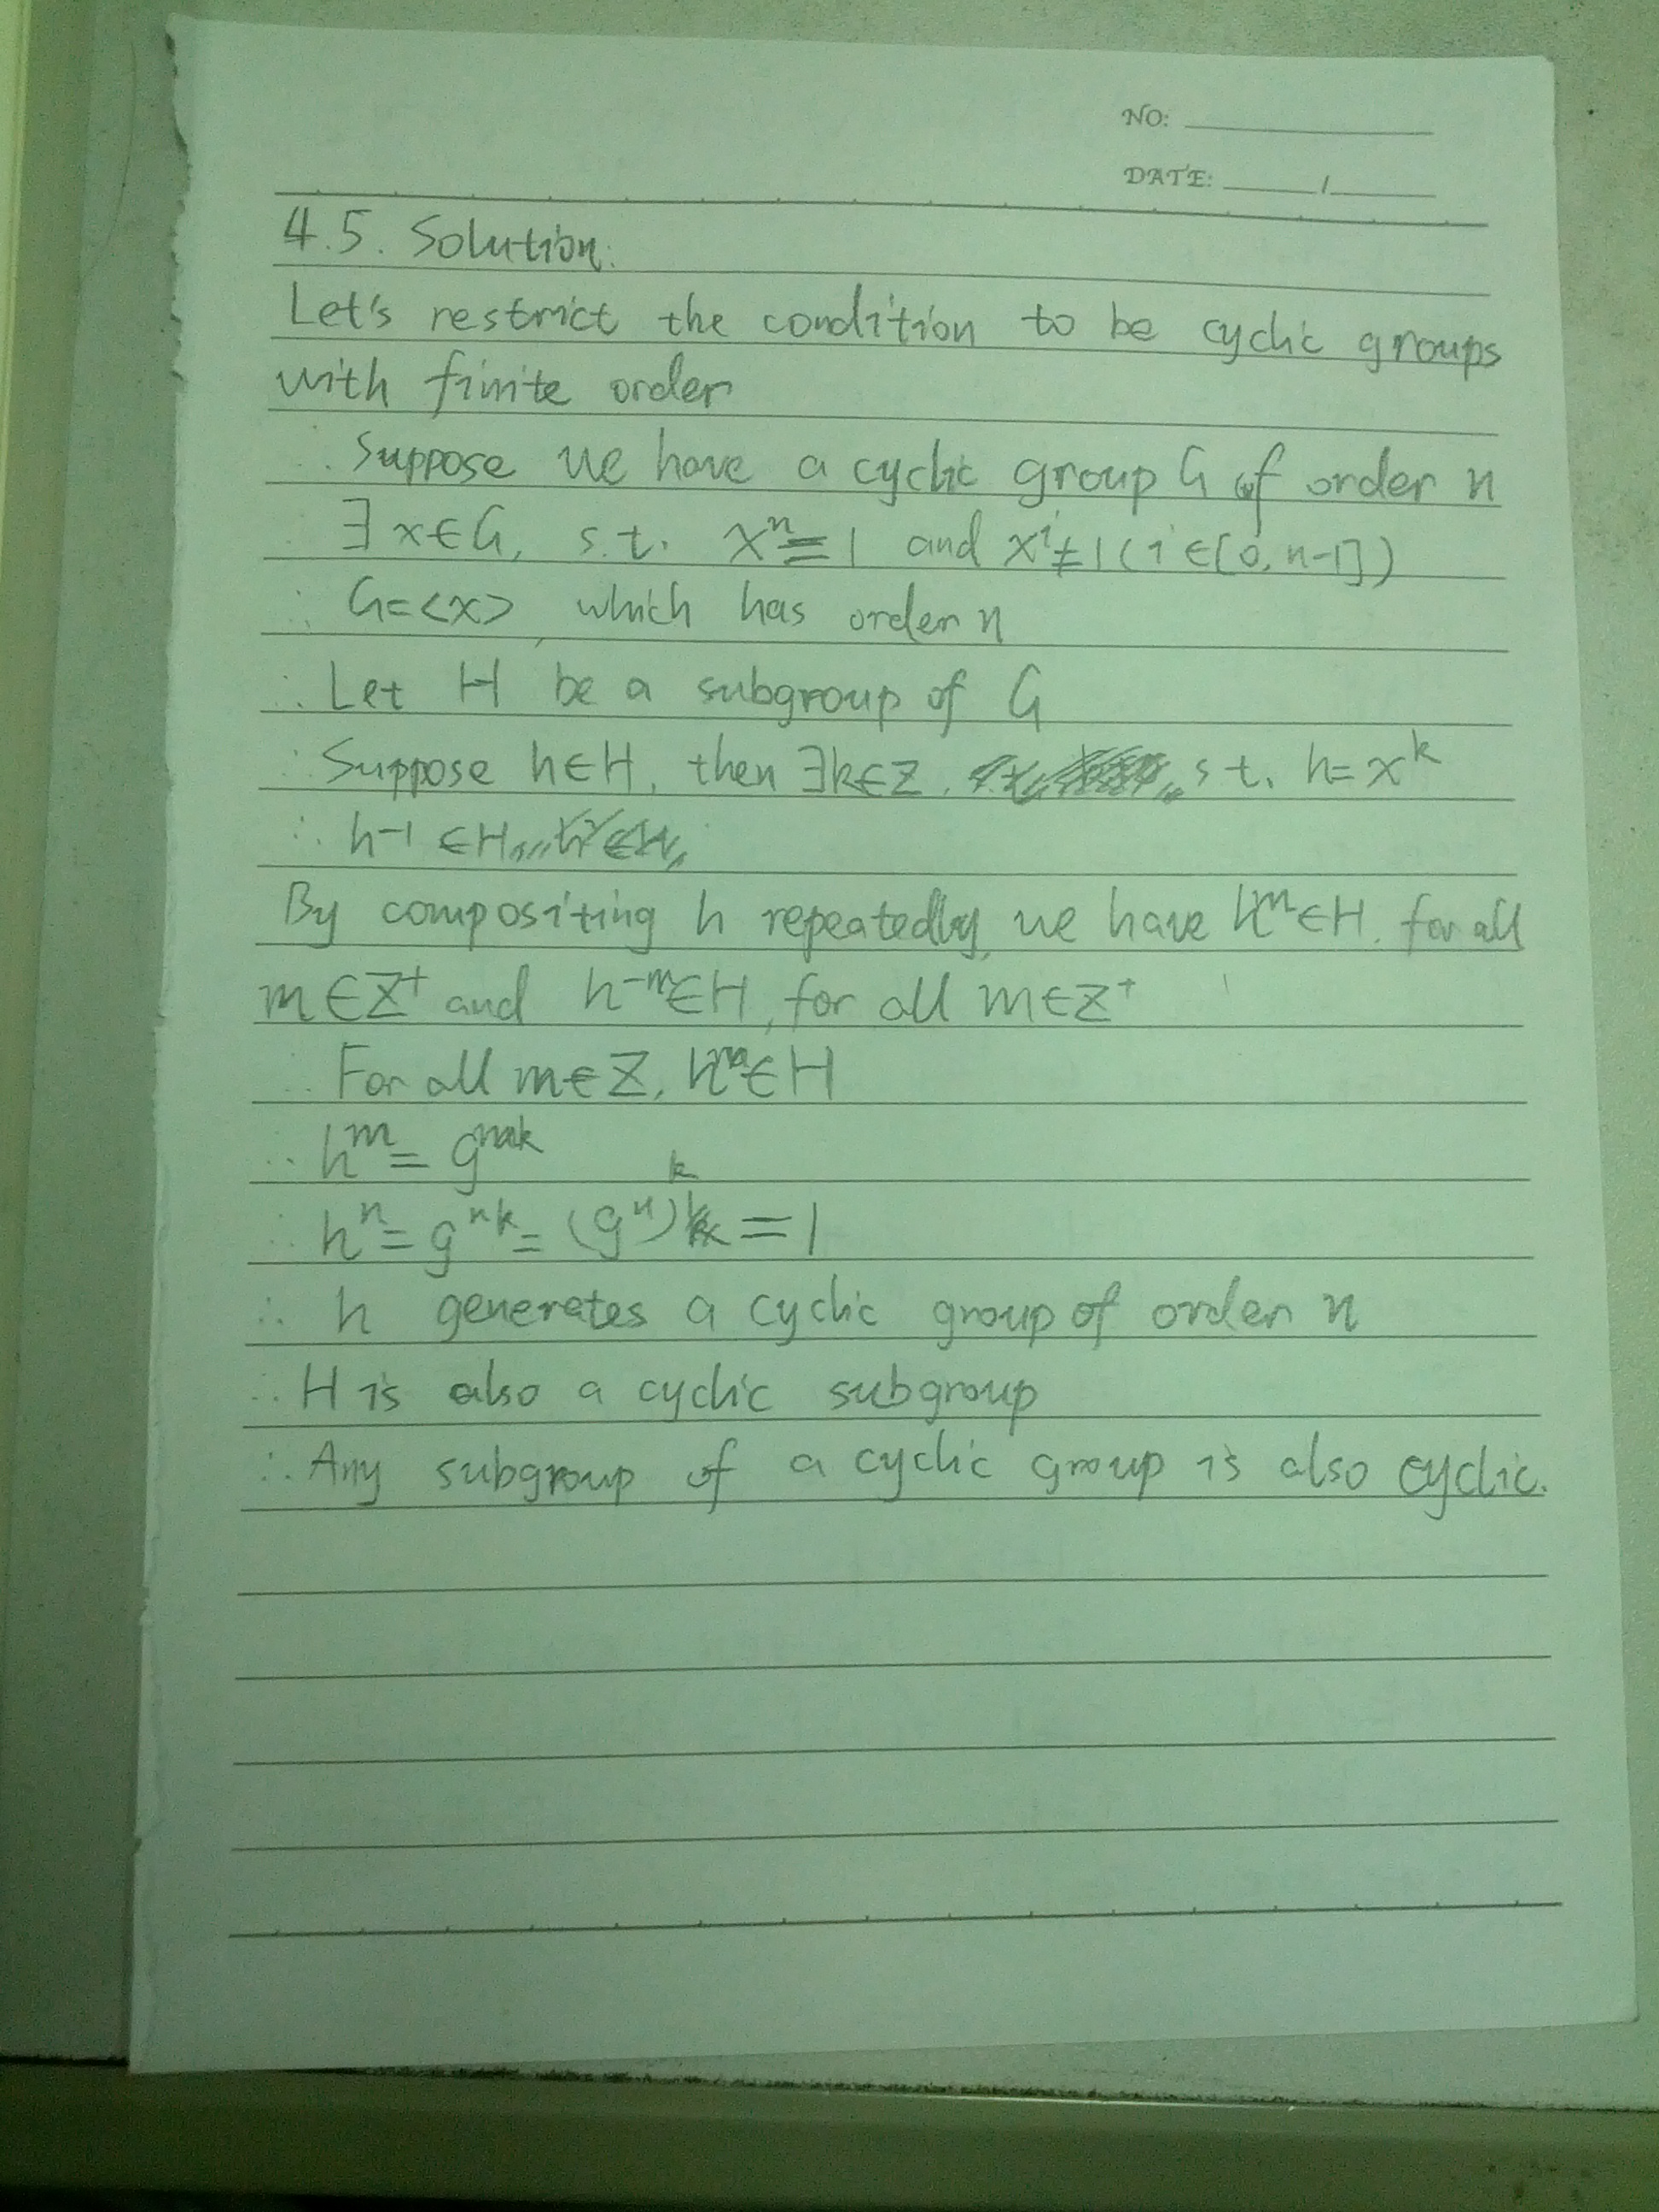 NO:
DATE: /
4.5. Solution:
Let's restrict the condition to be cyclic groups
with finite order
∴ Suppose we have a cyclic group G of order n
∴ ∃ x∈G, s.t. xⁿ=1 and xⁱ≠1 (i∈[0, n-1])
∴ G=<x>, which has order n
∴ Let H be a subgroup of G
∴ Suppose h∈H, then ∃k∈Z, s.t. h=x^k
∴ h-1 ∈H
By compositing h repeatedly, we have h^m∈H, for all
m∈Z⁺ and h^-m∈H, for all m∈Z⁺
∴ For all m∈Z, h^m∈H
∴ h^m = g^mk
∴ h^n = g^nk = (g^n)^k = 1
∴ h generates a cyclic group of order n
∴ H is also a cyclic subgroup
∴ Any subgroup of a cyclic group is also cyclic.